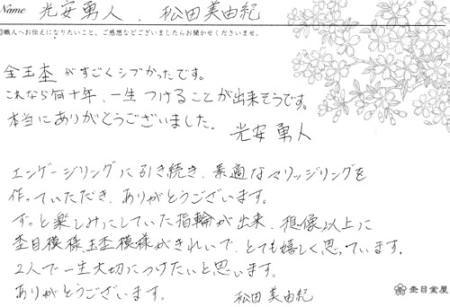 Name 光安勇人 、 松田美由紀
◎職人へお伝えになりたいこと、ご感想などございましたらお聞かせくださいませ。
全玉杢がすごくシブかったです。
これなら何十年、一生つけることが出来そうです。
本当にありがとうございました。
光安勇人
エンゲージリングに引き続き、素適なマリッジリングを
作っていただき、ありがとうございます。
ずっと楽しみにしていた指輪が出来、想像以上に
杢目模様、玉杢模様がきれいで、とても嬉しく思っています。
2人で一生大切につけたいと思います。
ありがとうございます。
松田美由紀
杢目金屋